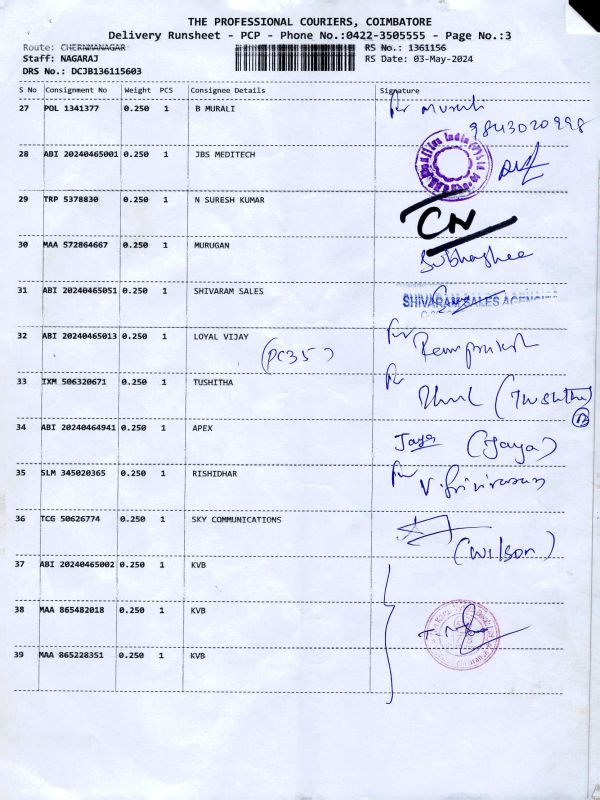 THE PROFESSIONAL COURIERS, COIMBATORE
Delivery Runsheet - PCP - Phone No.:0422-3505555 - Page No.:3
Route: CHERNMANAGAR RS No.: 1361156
Staff: NAGARAJ RS Date: 03-May-2024
DRS No.: DCJB136115603
S No Consignment No Weight PCS Consignee Details Signature
27 POL 1341377 0.250 1 B MURALI
9843020998
28 ABI 20240465001 0.250 1 JBS MEDITECH
29 TRP 5378830 0.250 1 N SURESH KUMAR CN
30 MAA 572864667 0.250 1 MURUGAN
31 ABI 20240465051 0.250 1 SHIVARAM SALES SHIVARAM SALES AGENCIES
32 ABI 20240465013 0.250 1 LOYAL VIJAY
(PC35)
33 IXM 506320671 0.250 1 TUSHITHA
34 ABI 20240464941 0.250 1 APEX Jaya (Jaya)
35 SLM 345020365 0.250 1 RISHIDHAR
36 TCG 50626774 0.250 1 SKY COMMUNICATIONS
(Wilson)
37 ABI 20240465002 0.250 1 KVB
38 MAA 865482018 0.250 1 KVB
39 MAA 865228351 0.250 1 KVB